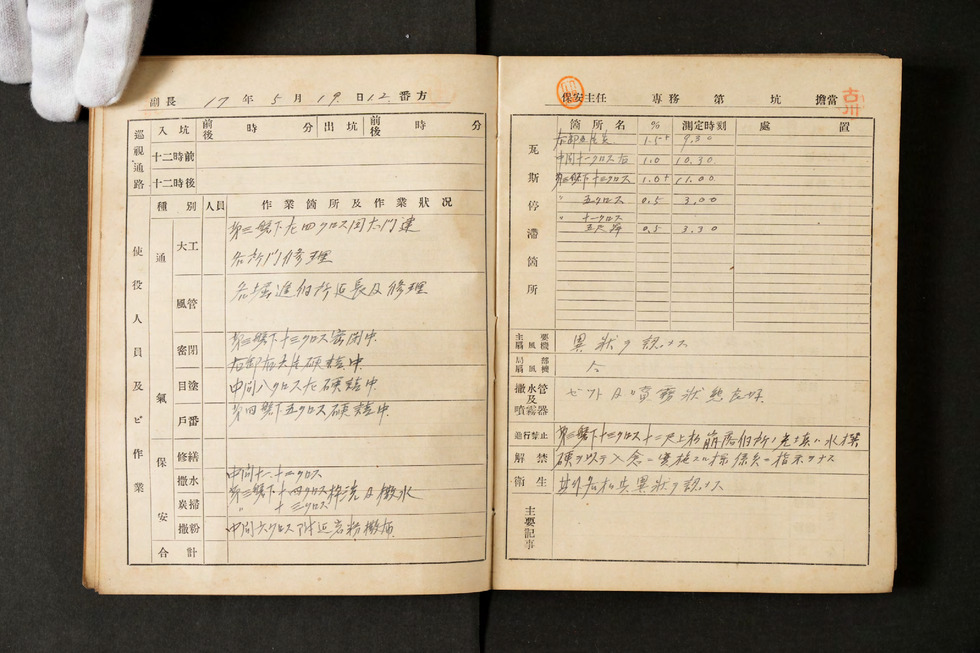 副長 17年5月19日12番方
巡視通路 入坑 前後 時 分 出坑 前後 時 分
十二時前
十二時後
使役人員及ビ作業
種別 人員 作業箇所及作業狀況
通氣
大工 第三盤下左四クロス間大門建
各所門修理
風管 各堀進個所延長及修理
密閉 第三盤下十三クロス密閉中
右部右大庭硬詰中
目塗 中間八クロス左硬詰中
戶番 第四盤下五クロス硬詰中
保安
修繕
撒水 中間十一十二クロス
第三盤下十四クロス枠洗及撒水
炭掃 〃 十三クロス
撒粉 中間六クロス附近岩粉撒布
合計
保安主任 專務 第 坑 擔當 古川
瓦斯停滯箇所
箇所名 % 測定時刻 處置
1.5+ 9.30
中間十一クロス右 1.0 10.30
第三盤下十三クロス 1.0+ 11.00
〃 五クロス 0.5 3.00
〃 十一クロス
0.5 3.30
主要扇風機 異狀ヲ認メス
局部扇風機 仝
撒水管及噴霧器 ゼット及噴霧狀態良好
進行禁止 第三盤下十三クロス十二尺上松崩落個所ノ充填ハ水撰
解禁 硬ヲ以テ入念ニ實施スル樣係員ニ指示ヲナス
衛生 其外各松共異狀ヲ認メス
主要記事